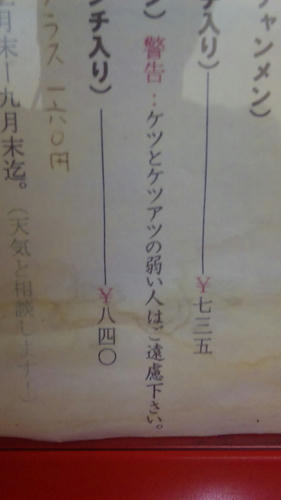 チャンメン)
チ入り) ¥七三五
) 警告…ケツとケツアツの弱い人はご遠慮下さい。
ンチ入り) ¥八四〇
ラス 一六〇円
月末ー九月末迄。(天気と相談します!)